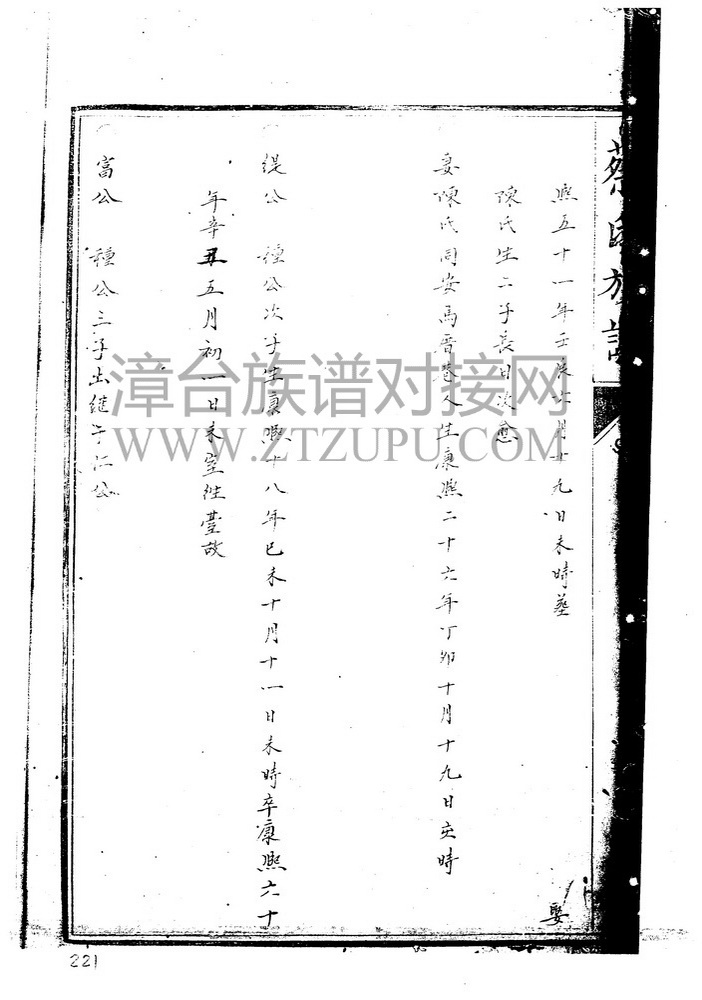 蔡氏族譜
熙五十一年壬辰六月十九日未時葬
娶
陳氏生二子長日次愈
妻陳氏同安馬巷人生康熙二十六年丁卯十月十九日亥時
緹公 種公次子生康熙十八年巳未十月十一日未時卒康熙六十
年辛丑五月初一日未室往臺故
富公 種公三子出继于仁公
漳台族谱对接网
WWW.ZTZUPU.COM
221